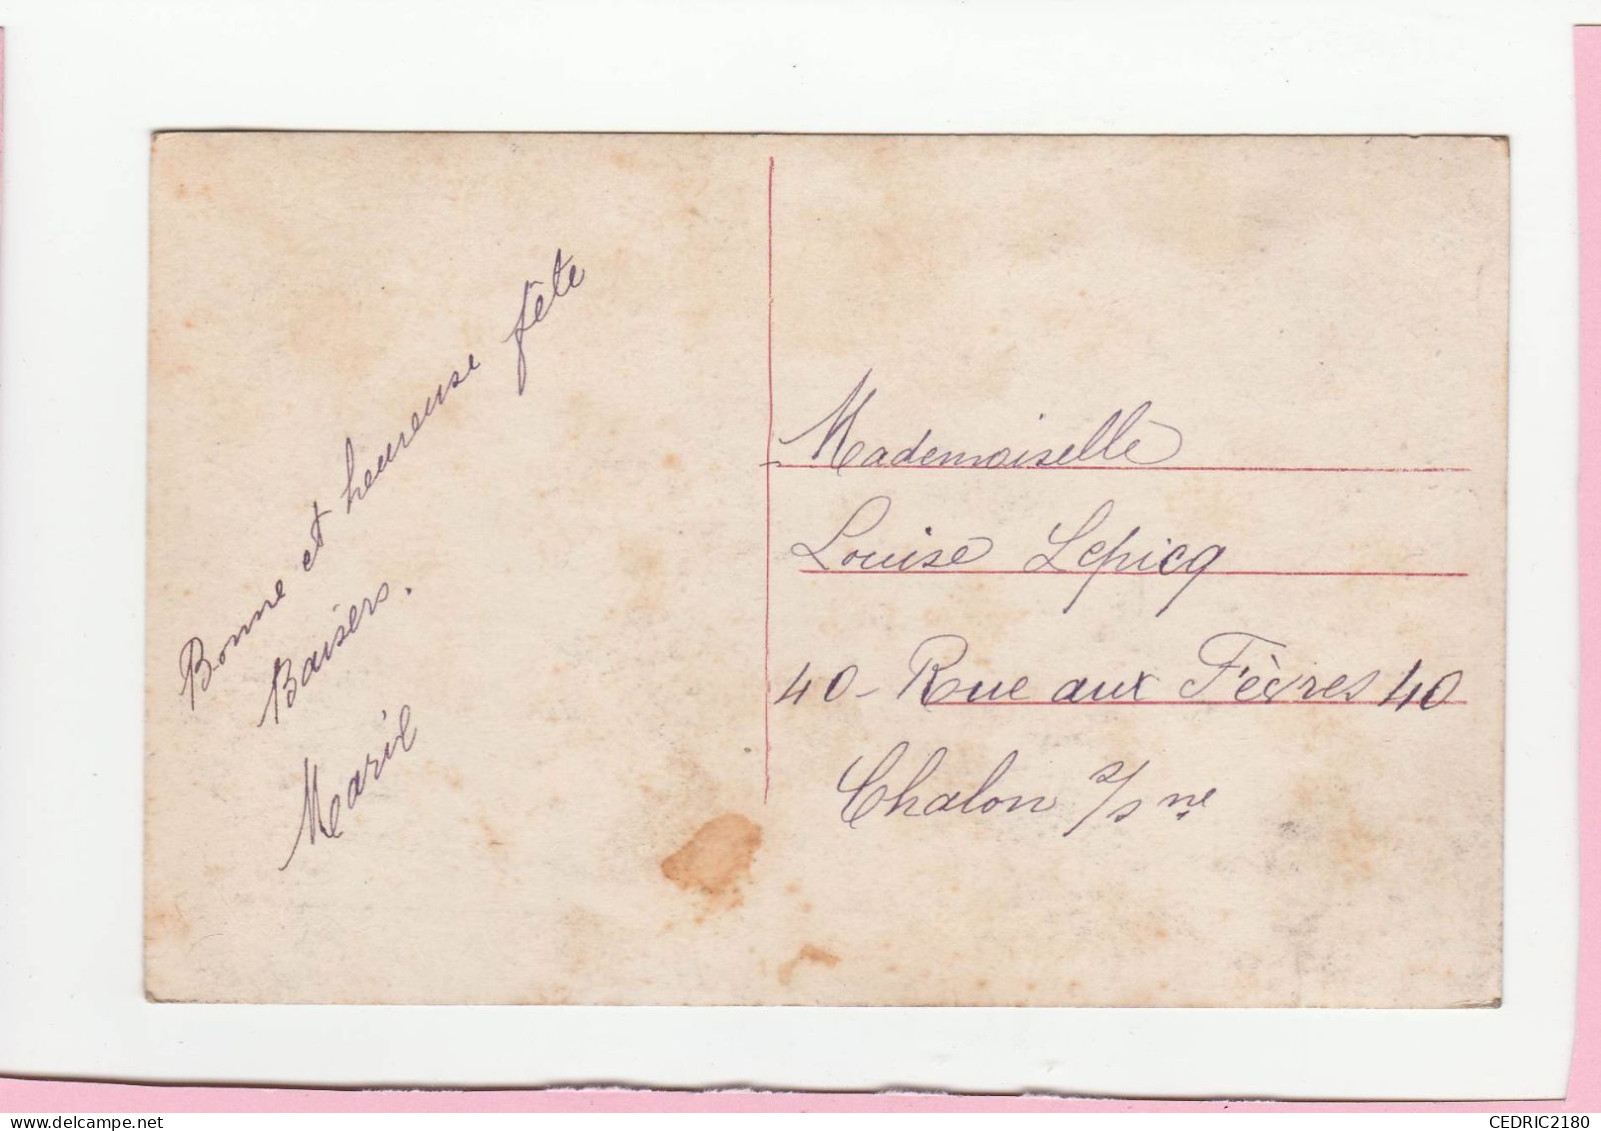 Bonne et heureuse fête
Baisers.
Marie
Mademoiselle
Louise Lepicq
40 - Rue aux Fèvres 40
Chalon s/s ne
CEDRIC2180